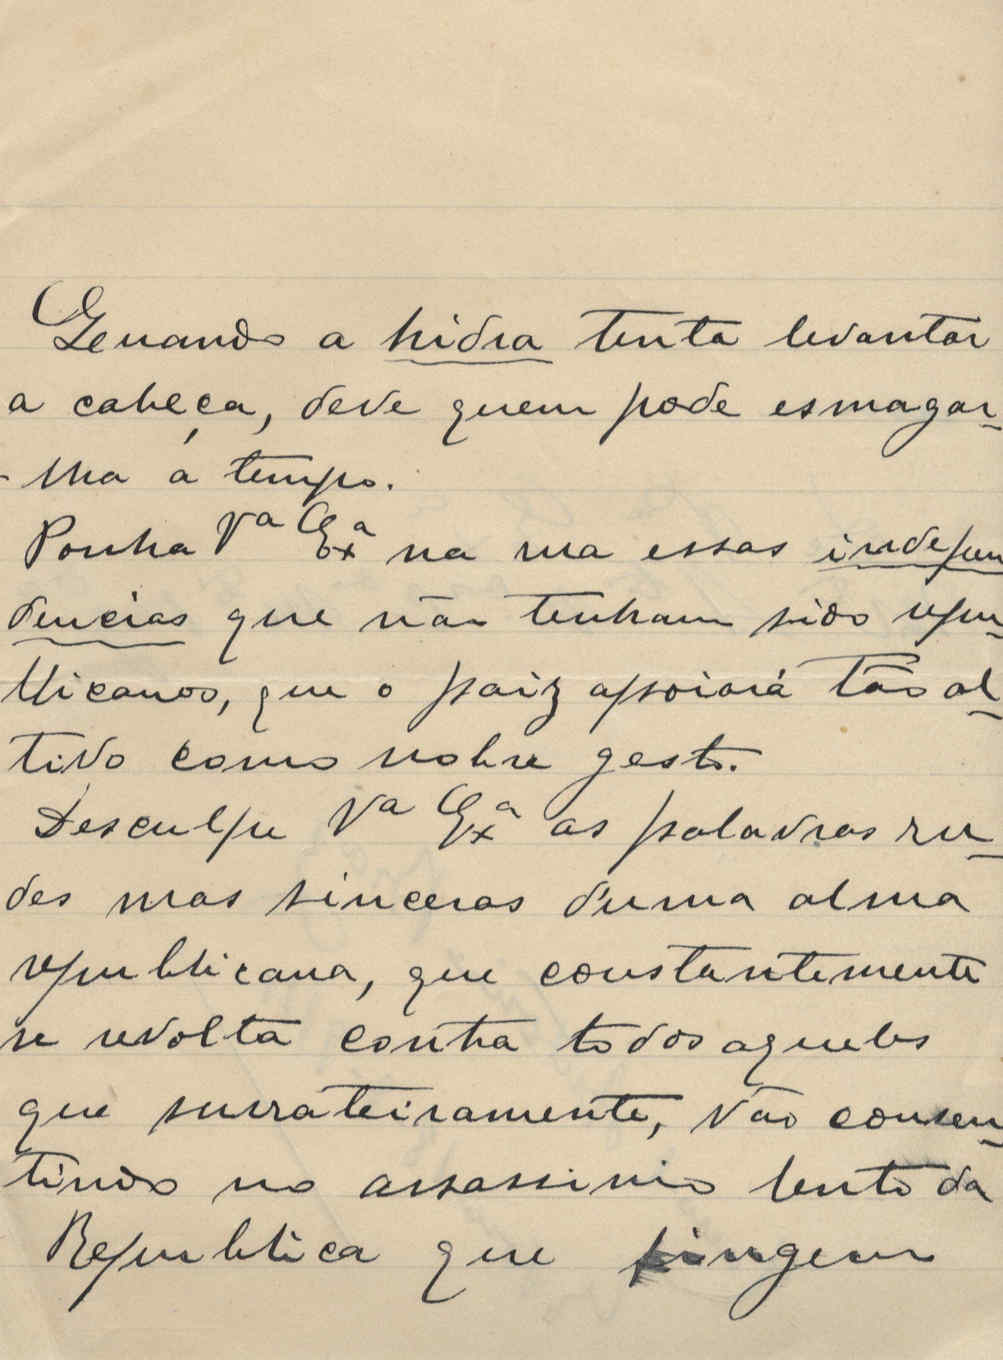 Quando a hidra tenta levantar
a cabeça, deve quem pode esmagar-
-lha a tempo.
Ponha Vª Exª na rua essas indepen
dencias que não tenham sido repu-
blicanos, que o paiz apoiará tão al-
tivo como nobre gesto.
Desculpe Vª Exª as palavras ru-
des mas sinceras d'uma alma
republicana, que constantemente
se revolta contra todos aqueles
que surrateiramente, vão consen-
tindo no assassinio lento da
Republica que fingem